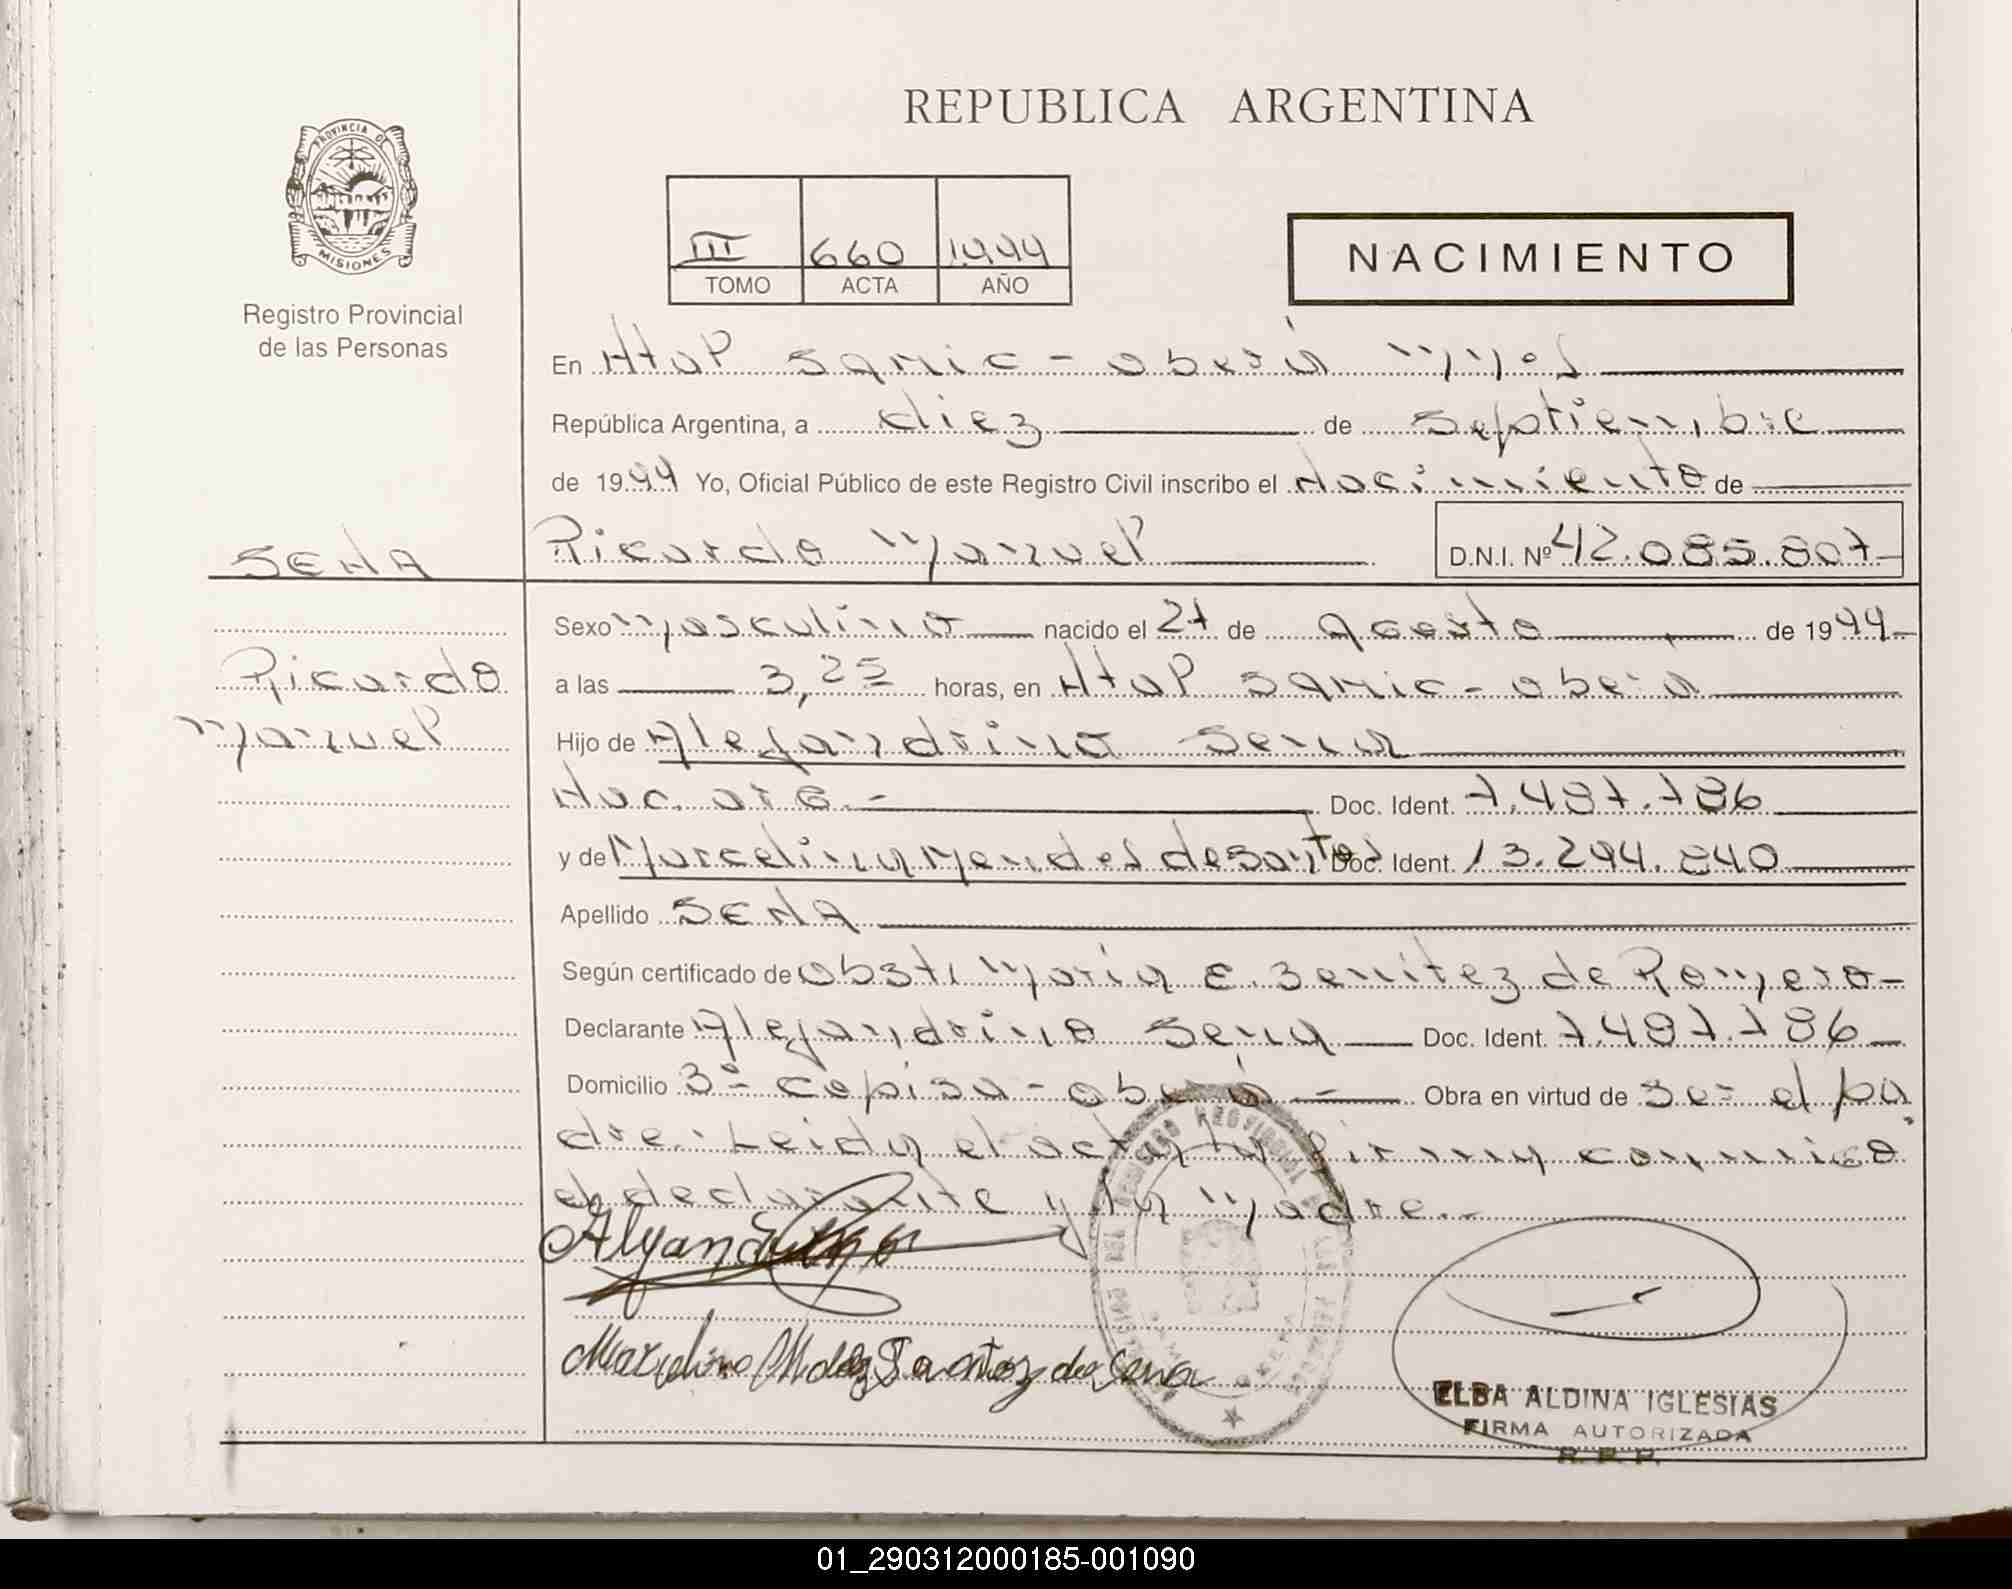 REPUBLICA ARGENTINA
PROVINCIA DE
MISIONES
Registro Provincial
de las Personas
III 660 1.999
TOMO ACTA AÑO
NACIMIENTO
En Htal SAMIC - Oberá Mnes
República Argentina, a diez de Septiembre
de 1999 Yo, Oficial Público de este Registro Civil inscribo el Nacimiento de
SENA
Ricardo Manuel D.N.I. Nº 42.085.807
Sexo Masculino nacido el 27 de agosto de 1999
Ricardo
Manuel
a las 3,25 horas, en Htal SAMIC - Oberá
Hijo de Alejandrino Sena
Nac. arg.- Doc. Ident. 7.487.786
y de Marcelina Mendes desantos Doc. Ident. 13.294.840
Apellido SENA
Según certificado de Obst. Maria E. Benitez de Romero-
Declarante Alejandrino Sena Doc. Ident. 7.487.786
Domicilio 3º - Oberá - Obra en virtud de Ser el pa
dre.- Leida el acta la firma conmigo
el declarante y la Madre.-
Marcelina Mdez Santoz de Sena
ELBA ALDINA IGLESIAS
FIRMA AUTORIZADA
R. P. P.
01_290312000185-001090